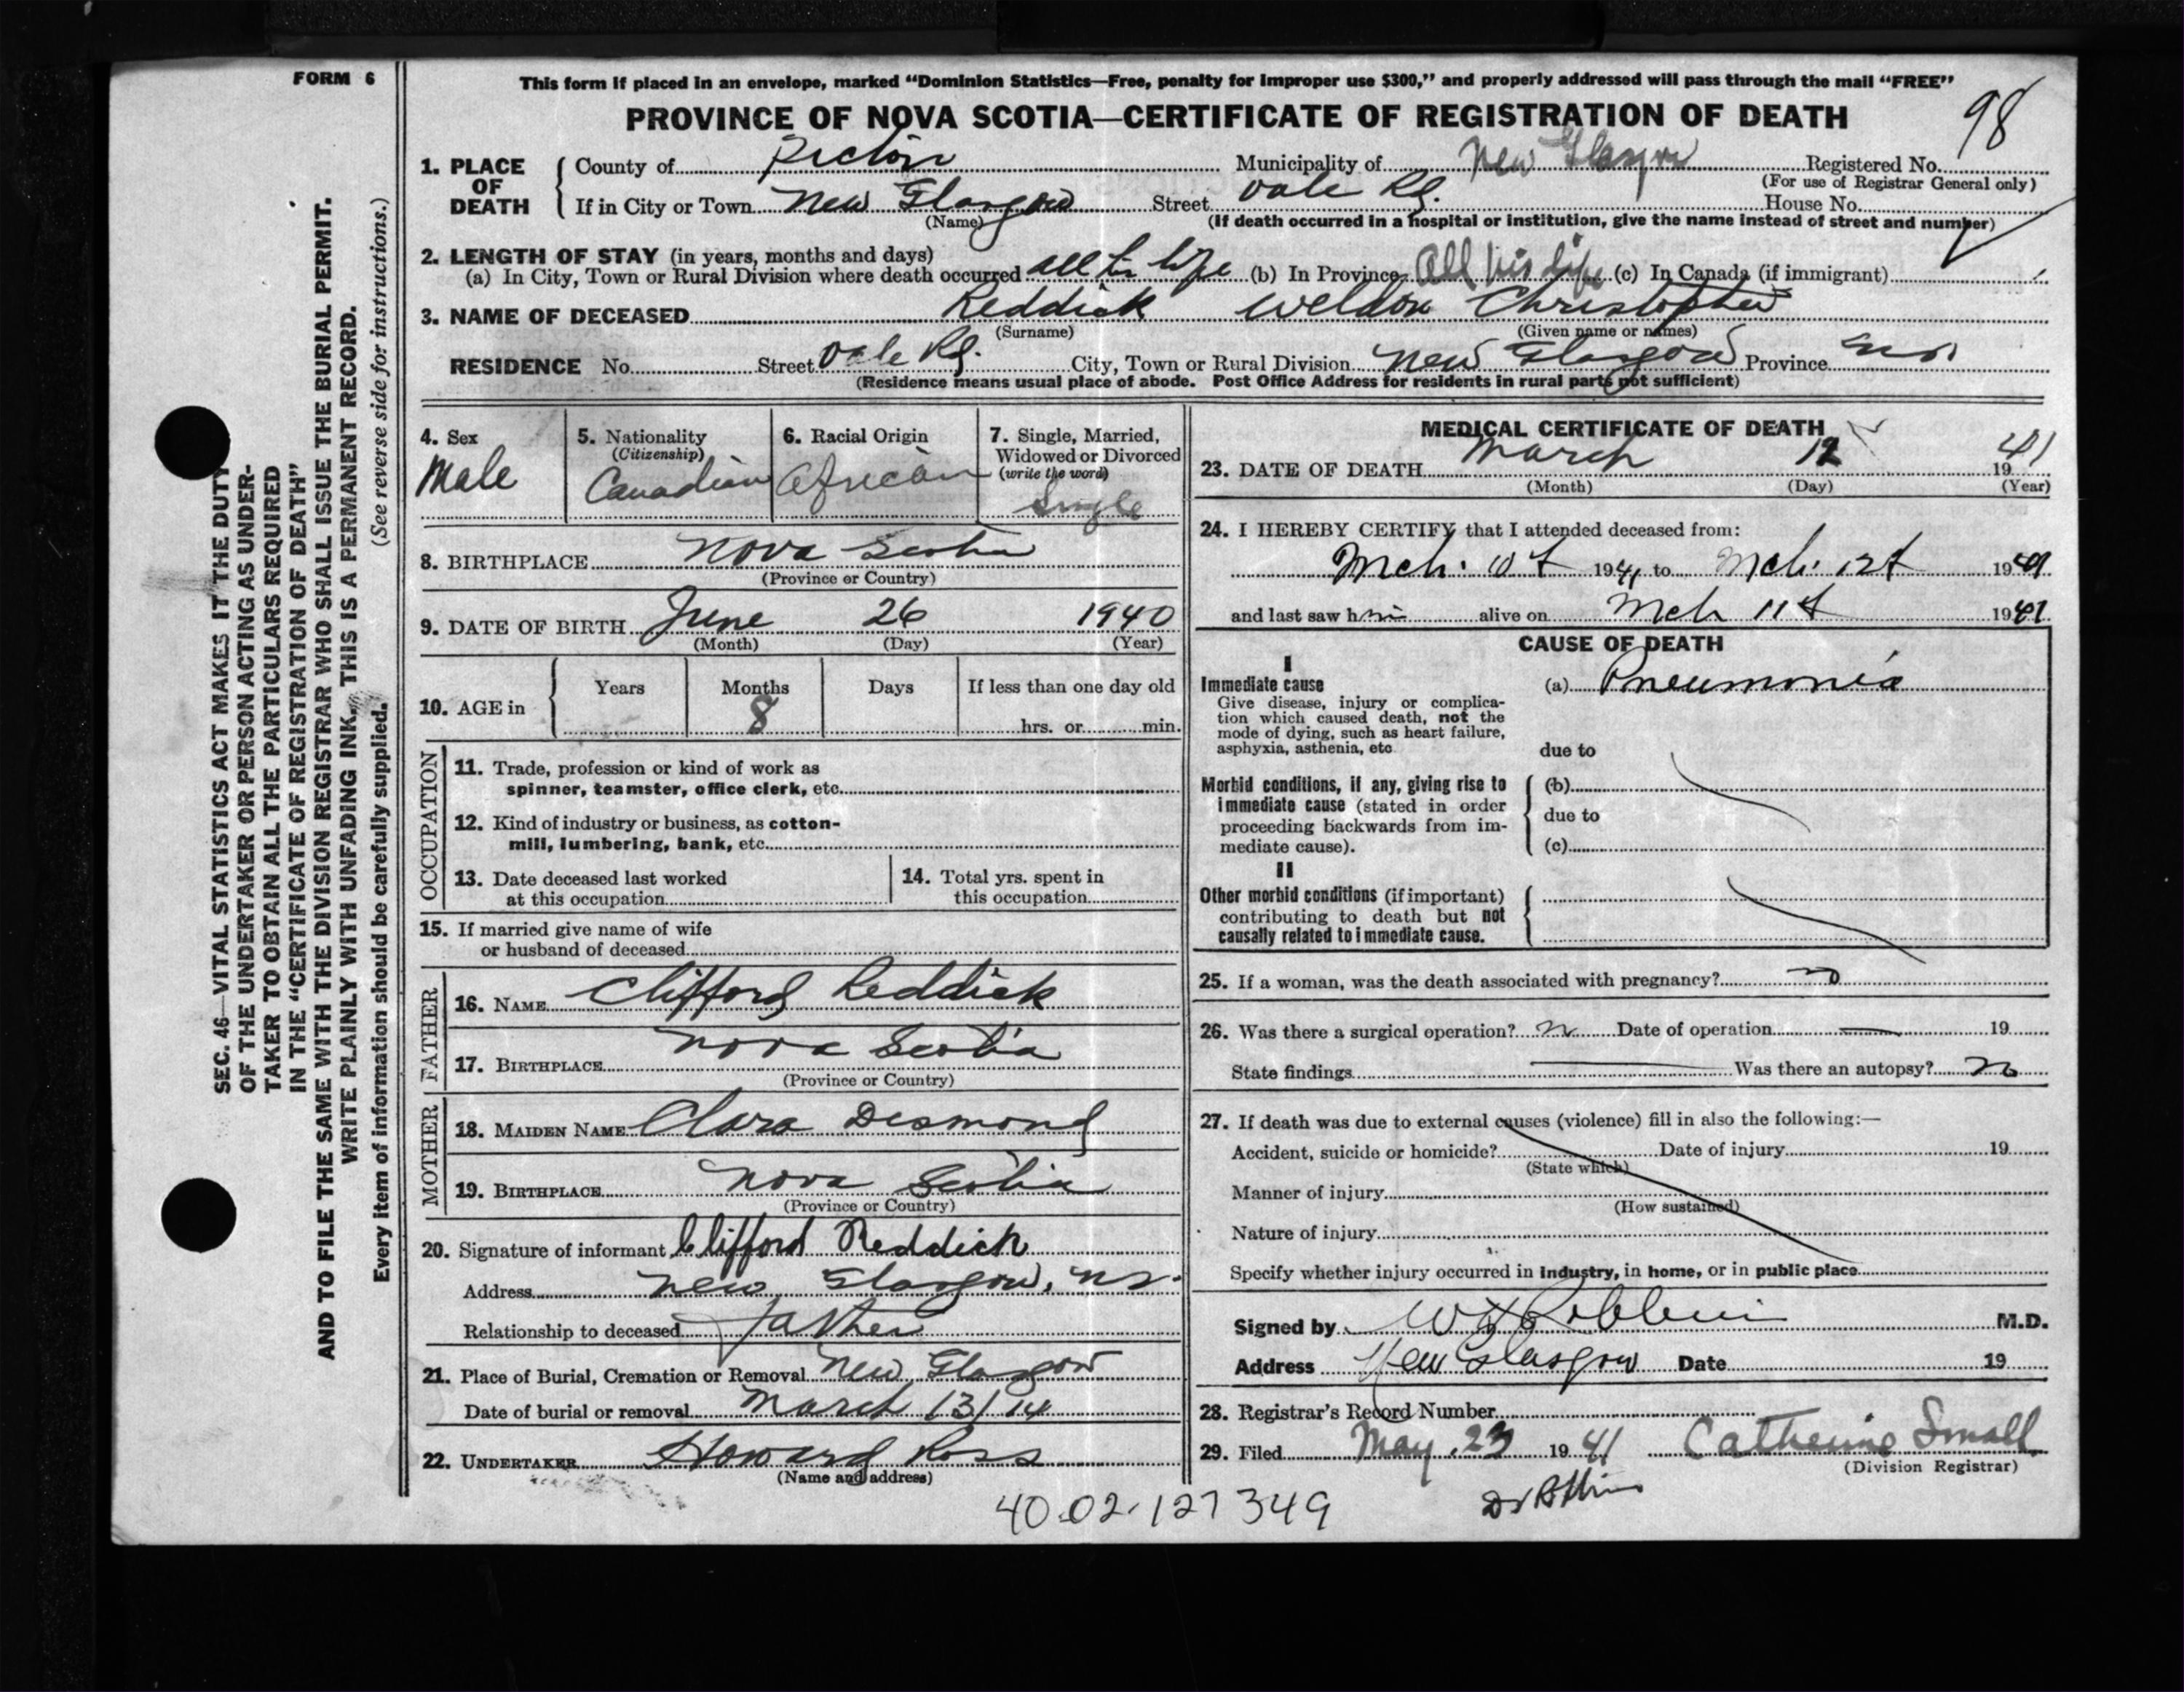 FORM 6
This form if placed in an envelope, marked “Dominion Statistics—Free, penalty for improper use $300,” and properly addressed will pass through the mail “FREE”
PROVINCE OF NOVA SCOTIA—CERTIFICATE OF REGISTRATION OF DEATH
98
1. PLACE OF DEATH { County of Pictou Municipality of New Glasgow Registered No.
(For use of Registrar General only)
If in City or Town New Glasgow Street Vale Rd. House No.
(Name) (If death occurred in a hospital or institution, give the name instead of street and number)
2. LENGTH OF STAY (in years, months and days)
(a) In City, Town or Rural Division where death occurred all his life (b) In Province All his life (c) In Canada (if immigrant)
3. NAME OF DECEASED Reddick Weldon Christopher
(Surname) (Given name or names)
RESIDENCE No. Street Vale Rd. City, Town or Rural Division New Glasgow Province N.S.
(Residence means usual place of abode. Post Office Address for residents in rural parts not sufficient)
4. Sex
Male
5. Nationality
(Citizenship)
Canadian
6. Racial Origin
African
7. Single, Married,
Widowed or Divorced
(write the word)
Single
8. BIRTHPLACE Nova Scotia
(Province or Country)
9. DATE OF BIRTH June 26 1940
(Month) (Day) (Year)
10. AGE in { Years Months Days If less than one day old
8 hrs. or min.
OCCUPATION
11. Trade, profession or kind of work as
spinner, teamster, office clerk, etc.
12. Kind of industry or business, as cotton-
mill, lumbering, bank, etc.
13. Date deceased last worked
at this occupation
14. Total yrs. spent in
this occupation
15. If married give name of wife
or husband of deceased
FATHER
16. NAME Clifford Reddick
17. BIRTHPLACE Nova Scotia
(Province or Country)
MOTHER
18. MAIDEN NAME Clara Desmond
19. BIRTHPLACE Nova Scotia
(Province or Country)
20. Signature of informant Clifford Reddick
Address New Glasgow, N.S.
Relationship to deceased Father
21. Place of Burial, Cremation or Removal New Glasgow
Date of burial or removal March 13/14
22. UNDERTAKER Howard Ross
(Name and address)
MEDICAL CERTIFICATE OF DEATH
23. DATE OF DEATH March 12 1941
(Month) (Day) (Year)
24. I HEREBY CERTIFY that I attended deceased from:
Mch. 10 1941 to Mch. 12 1941
and last saw him alive on Mch 11 1941
CAUSE OF DEATH
I
Immediate cause (a) Pneumonia
Give disease, injury or complica-
tion which caused death, not the
mode of dying, such as heart failure,
asphyxia, asthenia, etc
due to
Morbid conditions, if any, giving rise to
immediate cause (stated in order
proceeding backwards from im-
mediate cause).
(b)
due to
(c)
II
Other morbid conditions (if important)
contributing to death but not
causally related to immediate cause.
25. If a woman, was the death associated with pregnancy? no
26. Was there a surgical operation? n Date of operation 19
State findings Was there an autopsy? no
27. If death was due to external causes (violence) fill in also the following:—
Accident, suicide or homicide? Date of injury 19
(State which)
Manner of injury
(How sustained)
Nature of injury
Specify whether injury occurred in industry, in home, or in public place
Signed by M.D.
Address New Glasgow Date 19
28. Registrar's Record Number
29. Filed May 23 1941 Catherine Small
(Division Registrar)
40.02.127349
SEC. 46—VITAL STATISTICS ACT MAKES IT THE DUTY
OF THE UNDERTAKER OR PERSON ACTING AS UNDER-
TAKER TO OBTAIN ALL THE PARTICULARS REQUIRED
IN THE “CERTIFICATE OF REGISTRATION OF DEATH”
AND TO FILE THE SAME WITH THE DIVISION REGISTRAR WHO SHALL ISSUE THE BURIAL PERMIT.
WRITE PLAINLY WITH UNFADING INK. THIS IS A PERMANENT RECORD.
Every item of information should be carefully supplied. (See reverse side for instructions.)